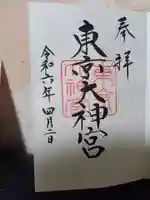 奉拝
東京大神宮
令和六年四月二日